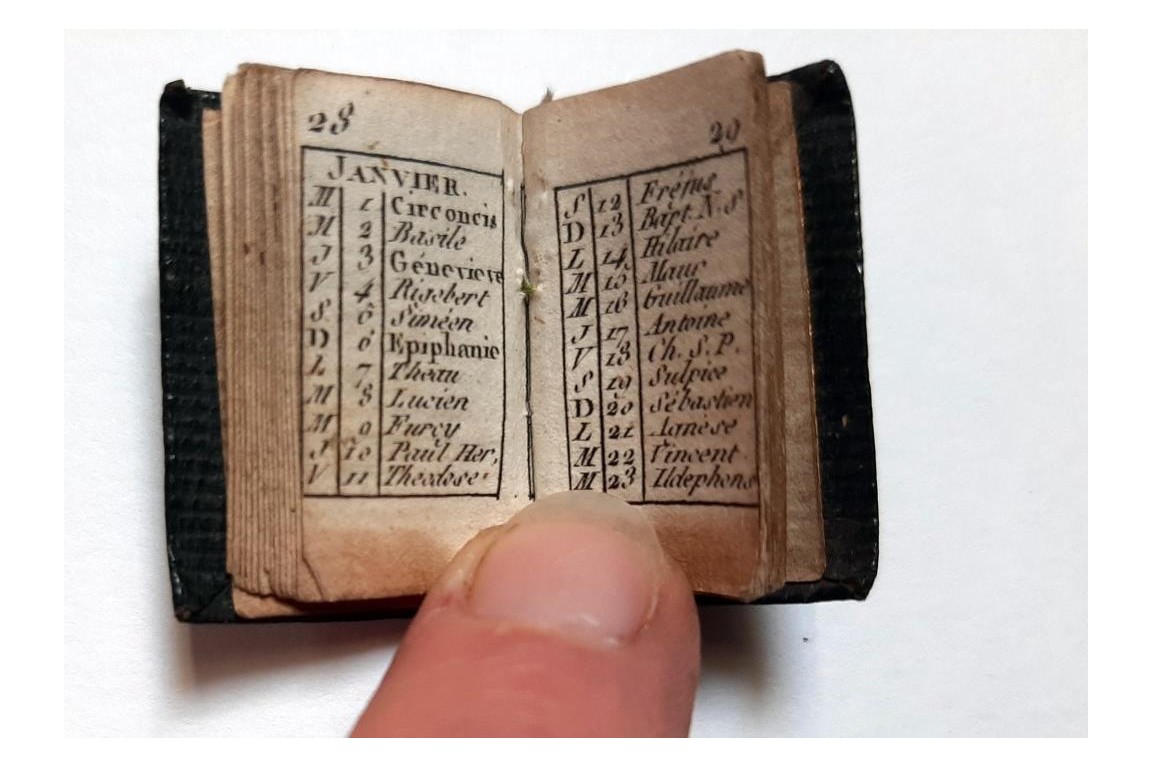 28
JANVIER.
M 1 Circoncis
M 2 Basile
J 3 Génevieve
V 4 Rigobert
S 5 Siméon
D 6 Epiphanie
L 7 Theau
M 8 Lucien
M 9 Furcy
J 10 Paul Her,
V 11 Theodose
29
S 12 Fréjus
D 13 Bapt. N. S
L 14 Hilaire
M 15 Maur
M 16 Guillaume
J 17 Antoine
V 18 Ch. S. P.
S 19 Sulpice
D 20 Sébastien
L 21 Agnèse
M 22 Vincent
M 23 Ildephons